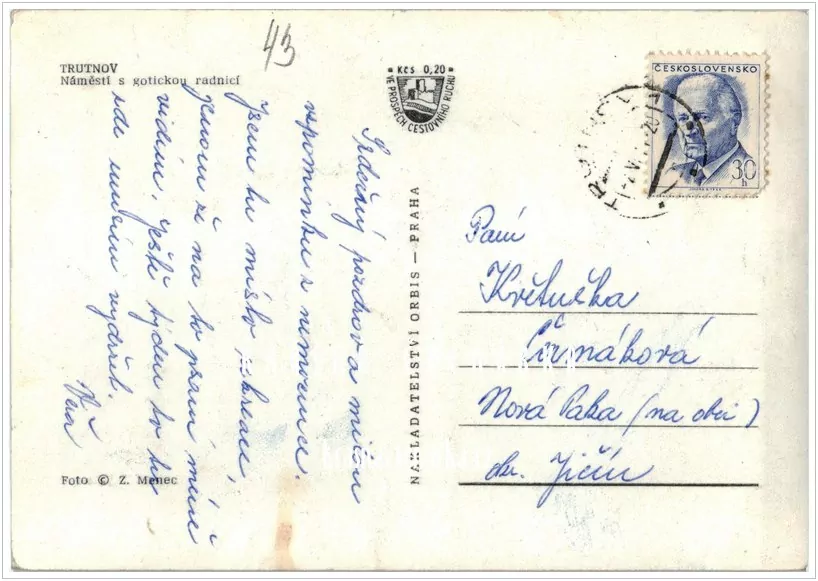 43
TRUTNOV
Náměstí s gotickou radnicí
Kčs 0,20
VE PROSPĚCH CESTOVNÍHO RUCHU
ČESKOSLOVENSKO
30 h
Srdečný pozdrav a milou
vzpomínku z nemocnice.
Jsem tu místo
že na to psaní
vidím. Ještě týden to tu
zde musím vydržet.
Věra
NAKLADATELSTVÍ ORBIS — PRAHA
Paní
Květuška
Čermáková
Nová Paka (na obci)
okr. Jičín
Foto © Z. Menec